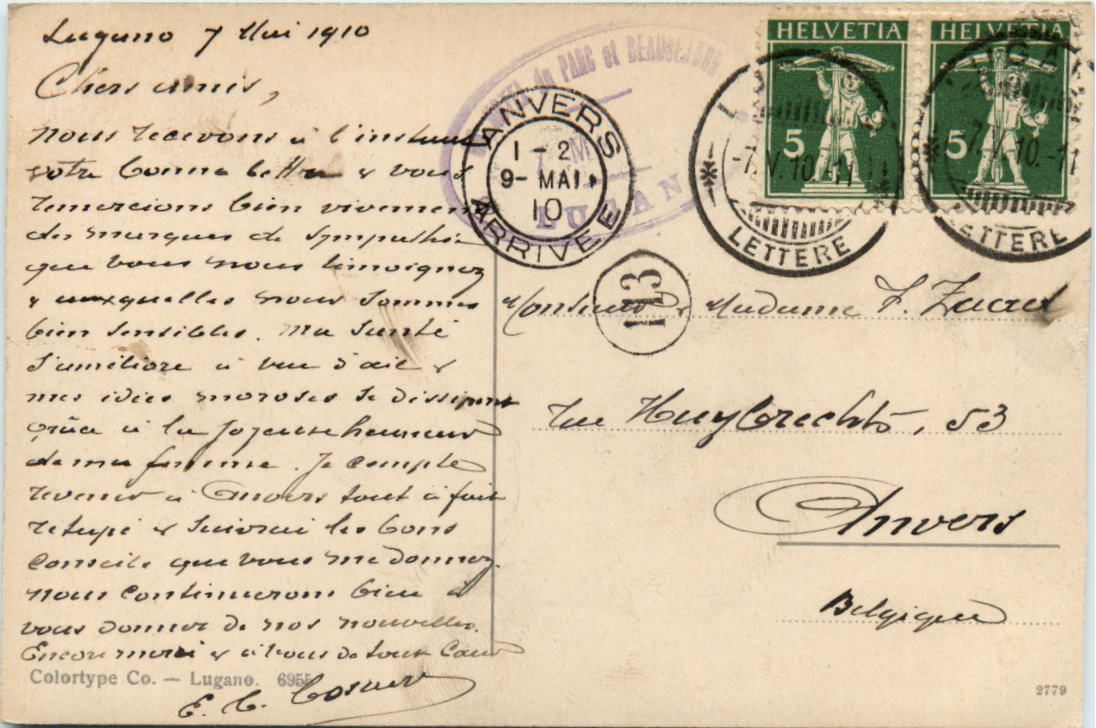 Lugano 7 Mai 1910
Chers amis,
nous recevons à l'instant
votre bonne lettre & vous
remercions bien vivement
des marques de sympathie
que vous nous témoignez
& auxquelles nous sommes
bien sensibles. Ma santé
s'améliore à vue d'œil &
mes idées moroses se dissipent
grâce à la joyeuse humeur
de ma femme. Je compte
revenir à Anvers tout à fait
retapé & suivrai les bons
conseils que vous me donnez.
nous continuerons bien à
vous donner de nos nouvelles.
Encore merci & à vous de tout cœur
E. C.
Colortype Co. — Lugano. 6955
du PARC et BEAUSEJOUR
LUGANO
ANVERS
1 - 2
9 - MAI
10
ARRIVEE
HELVETIA
5
HELVETIA
5
-7.V.10.-11
LETTERE
7.V.10.-11
LETTERE
113
Monsieur & Madame F.
rue Huybrechts, 53
Anvers
Belgique
2779